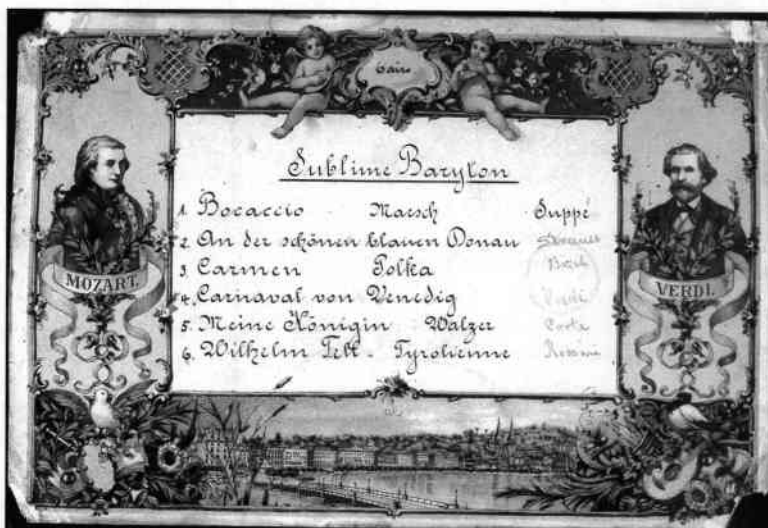 Cairo
Sublime Baryton
1. Bocaccio Marsch Suppé
2. An der schönen blauen Donau Strauss
3. Carmen Polka Bizet
4. Carnaval von Venedig
5. Meine Königin Walzer Coote
6. Wilhelm Tell - Tyrolienne Rossini
MOZART.
VERDI.